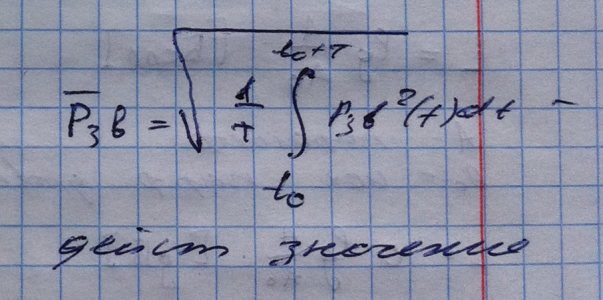 P̅₃в = √(1/T ∫_{t₀}^{t₀+T} P₃в²(t)dt) –
дейст значение